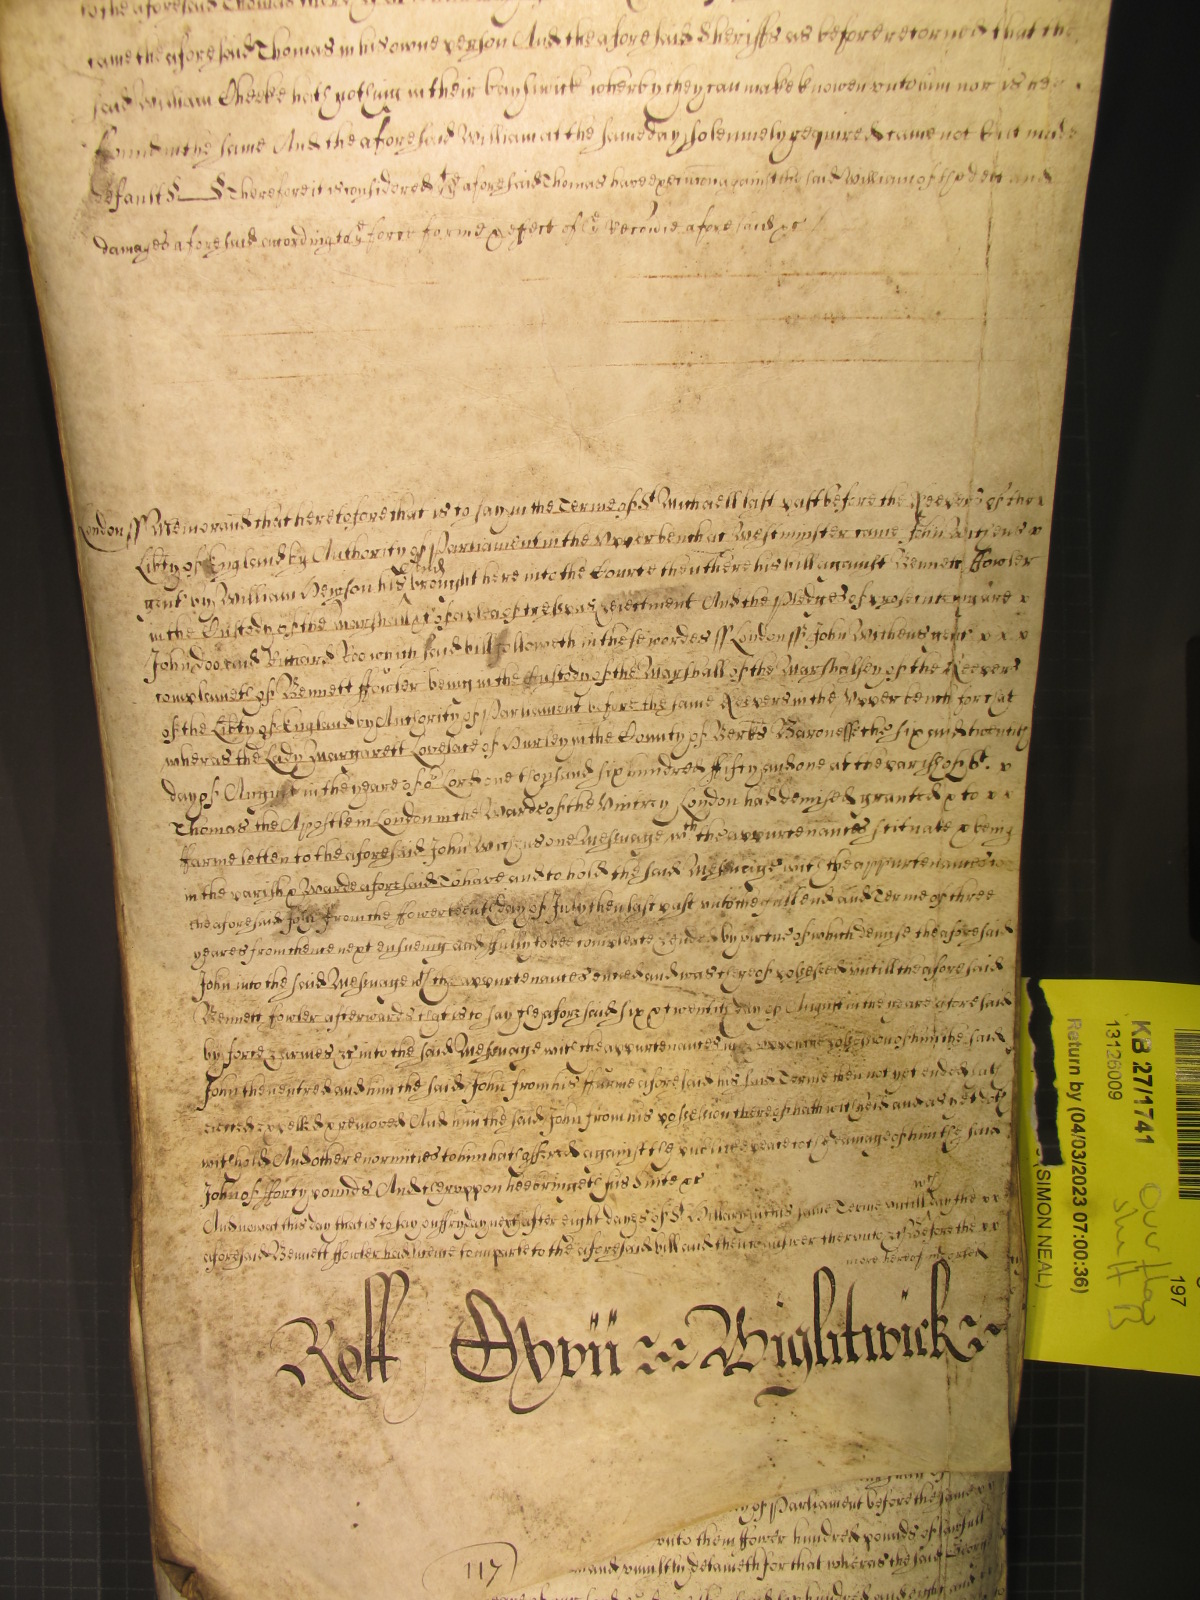 to the aforesaid Thomas
came the aforesaid Thomas in his owne person And the aforesaid Sheriffs as before retorned that the
said William Cheeke hath nothing in their bayliwick wherby they can make knowen unto him nor is hee
ffound in the same And the aforesaid William at the same day solemnely required came not but made
default Therefore it is considered yt ye aforesaid Thomas have execucon against the said William of the debt and
damages aforesaid according to ye force forme & effect of ye Recovie aforesaid &c
London ss Memorand that heretofore that is to say in the Terme of St Michaell last past before the Keepers of the x
Libty of England by Authority of Parliament in the Upper bench at Westminster came John Withens x
gent by William his and brought here into the Courte then there his bill against Bennett Fowler
in the Custody of the Marshall &c of a plea of trespas & eiectment And the pledges of prosecucon are x
John doo and Richard Roo which said bill followeth in these wordes ss London ss John Withens gent x x x
complaineth of Bennett Fowler being in the Custody of the Marshall of the Marshalsey of the Keepers
of the Libty of England by Authority of Parliament before the same Keepers in the Upper bench for that
wheras the Lady Margarett Lovelace of Hurley in the County of Berks Baronesse the six and twentith
day of August in the yeare of or Lord one thousand six hundred ffifty and one at the parish of St. x
Thomas the Apostle in London in the Warde of the Vintrey London had demised granted & to x x
ffarme letten to the aforesaid John Withens one Messuage wth the appurtenances scituate & being
in the parish & Warde aforesaid To have and to hold the said Messuage with the appurtenances to
the aforesaid John from the ffowerteenth day of July then last past unto the full end and Terme of three
yeares from thence next ensueing and fully to bee compleate & ended by virtue of which demise the aforesaid
John into the said Messuage wth the appurtenances entred and was thereof possessed untill the aforesaid
Bennett Fowler afterwards that is to say the aforesaid six & twentith day of August in the yeare aforesaid
by force & armes &c into the said Messuage with the appurtenances in & upon the possession of him the said
John then entred and him the said John from his ffarme aforesaid his said Terme then not yet ended hath
eiected expelled & removed And him the said John from his possession thereof hath witheld and as yet doth
withold And other enormities to him hath offered against the publike peace to the damage of him the said
John of fforty pounds And thereupon hee bringeth his suite &c
And now at this day that is to say on ffryday next after eight dayes of St Hillary in this same Terme untill wch day the x x
aforesaid Bennett Fowler had licence to imparle to the aforesaid bill and then to answer thereunto &c Before the x x
Rolf Wightwick
y of Parliament before the same
unto them ffower hundred pounds of lawfull
and uniustly detaineth for that wheras the said George
117
KB 27/1741
13126009
Return by (04/03/2023 07:00:36)
(SIMON NEAL)
197